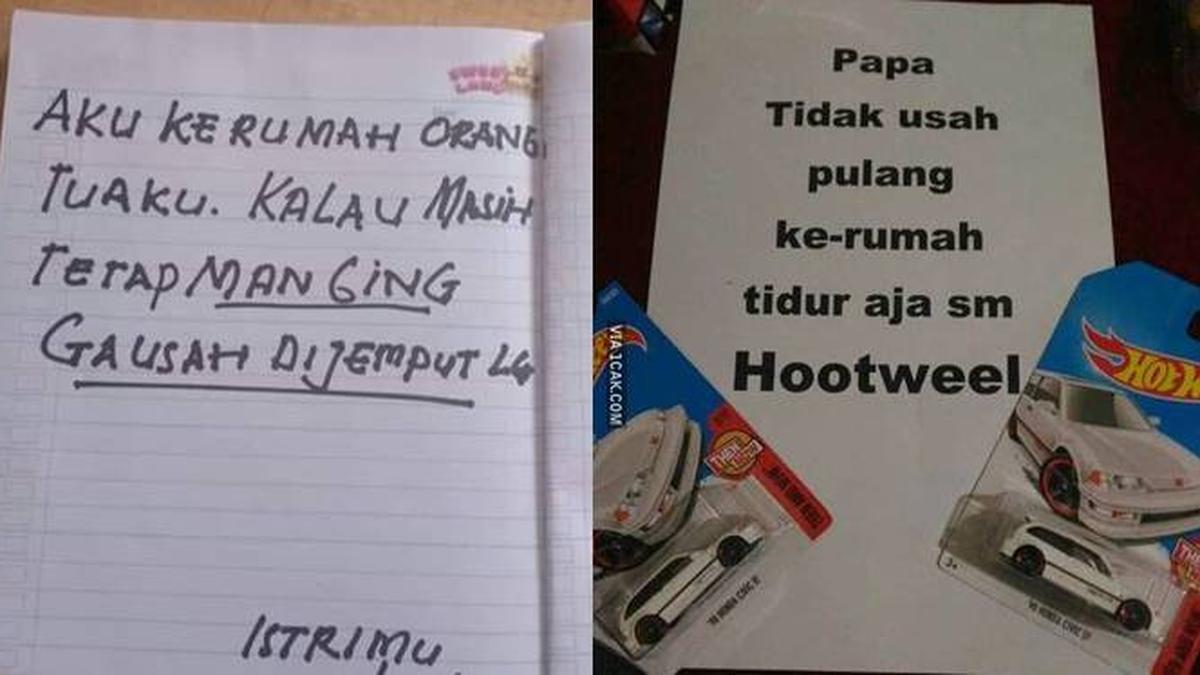 AKU KE RUMAH ORANG
TUAKU. KALAU MASIH
TETAP MANGING
GAUSAH DIJEMPUT LG
ISTRIMU
Papa
Tidak usah
pulang
ke-rumah
tidur aja sm
Hootweel
VIA 1CAK.COM
HOT W
'90 HONDA CIVIC EF
'90 HONDA CIVIC EF
3+